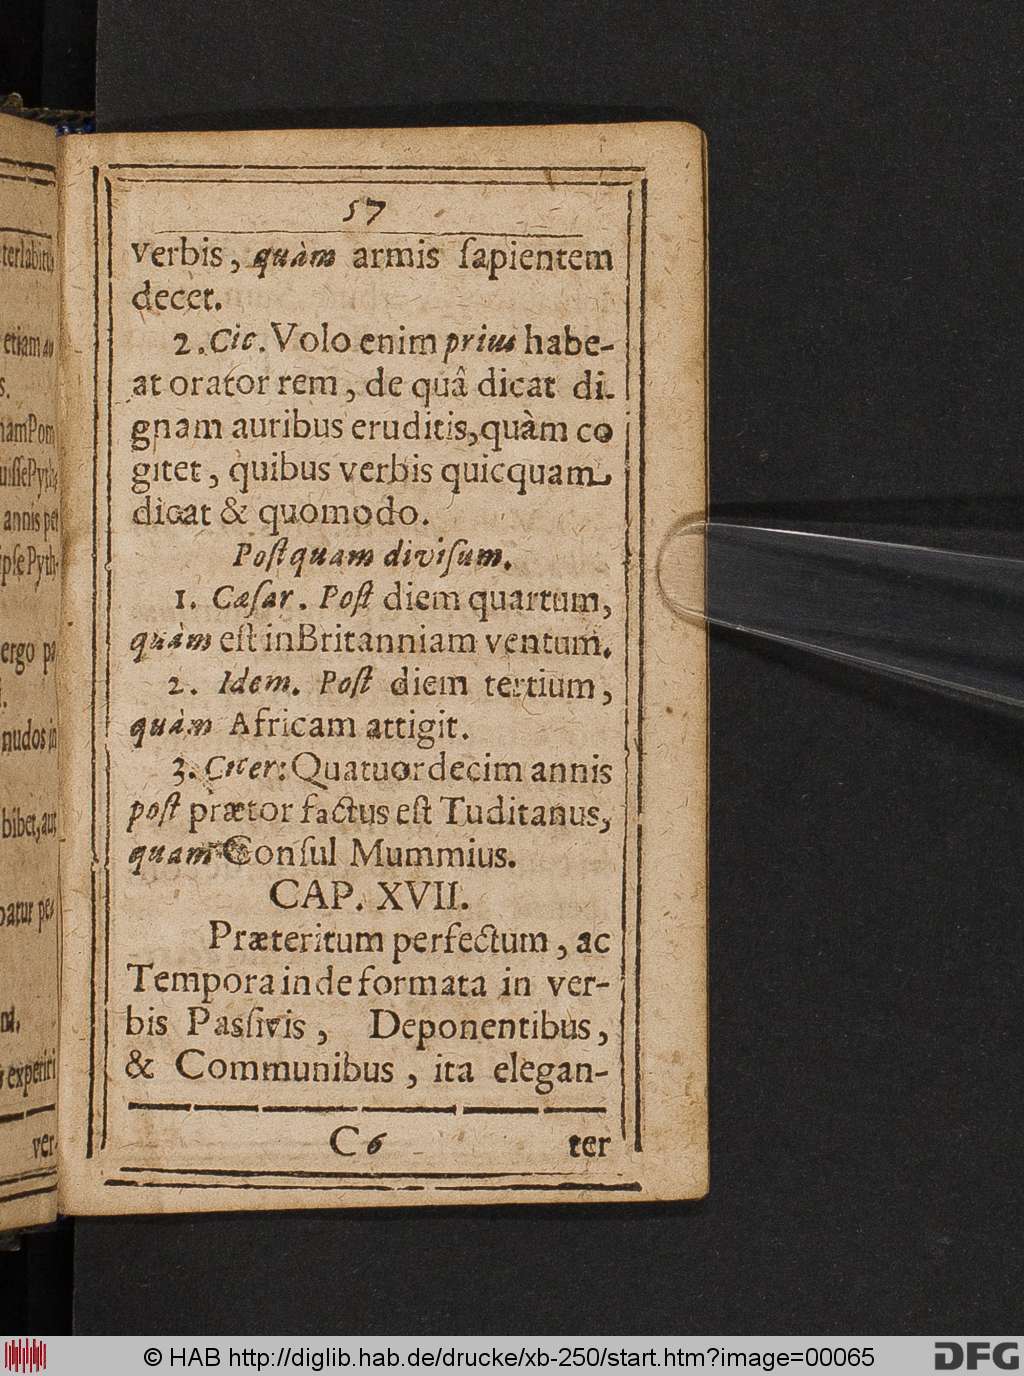 57
verbis, quàm armis ſapientem
decet.
2. Cic. Volo enim prius habe-
at orator rem, de quâ dicat di-
gnam auribus eruditis, quàm co
gitet, quibus verbis quicquam
dicat & quomodo.
Poſtquam diviſum.
1. Cæſar. Poſt diem quartum,
quàm eſt in Britanniam ventum.
2. Idem. Poſt diem tertium,
quàm Africam attigit.
3. Cicer: Quatuordecim annis
poſt prætor factus eſt Tuditanus,
quam Conſul Mummius.
CAP. XVII.
Præteritum perfectum, ac
Tempora inde formata in ver-
bis Paſſivis, Deponentibus,
& Communibus, ita elegan-
C 6 ter
etiam
annis
ergo
nudos
bibet, aut
experiri
ver-
© HAB http://diglib.hab.de/drucke/xb-250/start.htm?image=00065
DFG